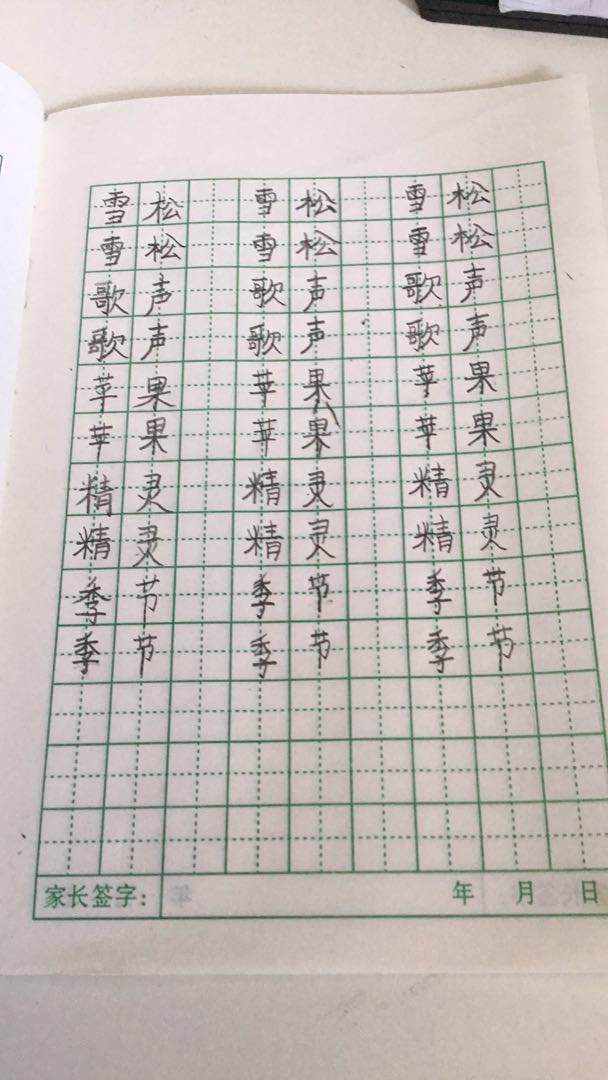 雪松 雪松 雪松
雪松 雪松 雪松
歌声 歌声 歌声
歌声 歌声 歌声
苹果 苹果 苹果
苹果 苹果 苹果
精灵 精灵 精灵
精灵 精灵 精灵
季节 季节 季节
季节 季节 季节
家长签字： 年 月 日